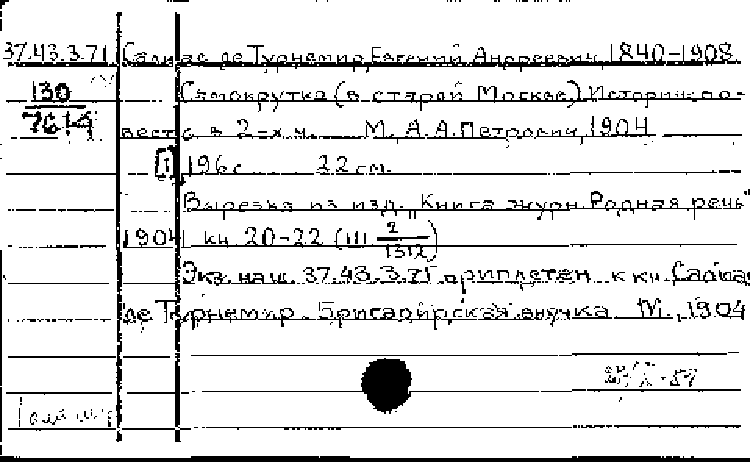 37.43.3.71 Салиас де Турнемир, Евгений Андреевич, 1840-1908
130 Самокрутка (в старой Москве). Историческ.
7614 вест в 2-х ч. М., А.А. Петрович, 1904
[1], 196 с. 22 см.
Вырезка из изд. "Книга журн. Родная речь"
1904 кн. 20-22 (III 2/1312)
Экз. наш. 37.43.3.71 приплетен к кн. Салиас
де Турнемир. Бригадирская внучка. М., 1904